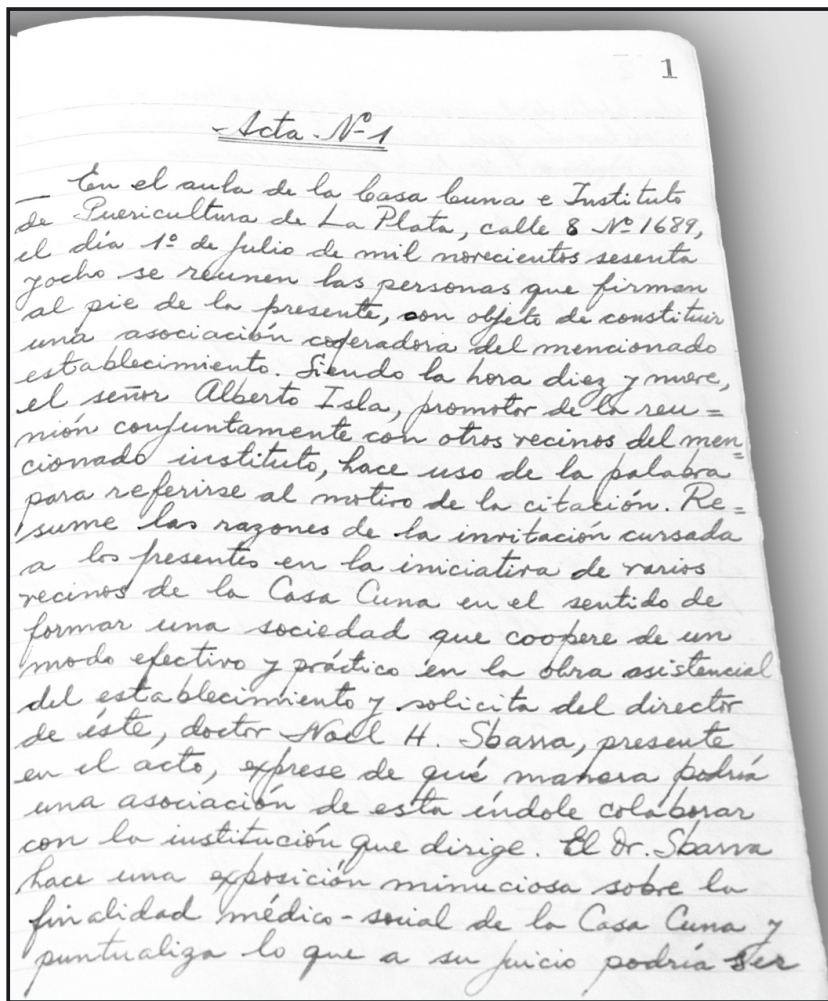 1
Acta Nº 1
En el aula de la Casa Cuna e Instituto
de Puericultura de La Plata, calle 8 Nº 1689,
el día 1º de julio de mil novecientos sesenta
y ocho se reunen las personas que firman
al pie de la presente, con objeto de constituir
una asociación cooperadora del mencionado
establecimiento. Siendo la hora diez y nueve,
el señor Alberto Isla, promotor de la reu=
nión conjuntamente con otros vecinos del men=
cionado instituto, hace uso de la palabra
para referirse al motivo de la citación. Re=
sume las razones de la invitación cursada
a los presentes en la iniciativa de varios
vecinos de la Casa Cuna en el sentido de
formar una sociedad que coopere de un
modo efectivo y práctico en la obra asistencial
del establecimiento y solicita del director
de éste, doctor Noel H. Sbarra, presente
en el acto, exprese de qué manera podría
una asociación de esta índole colaborar
con la institución que dirige. El Dr. Sbarra
hace una exposición minuciosa sobre la
finalidad médico-social de la Casa Cuna y
puntualiza lo que a su juicio podría ser